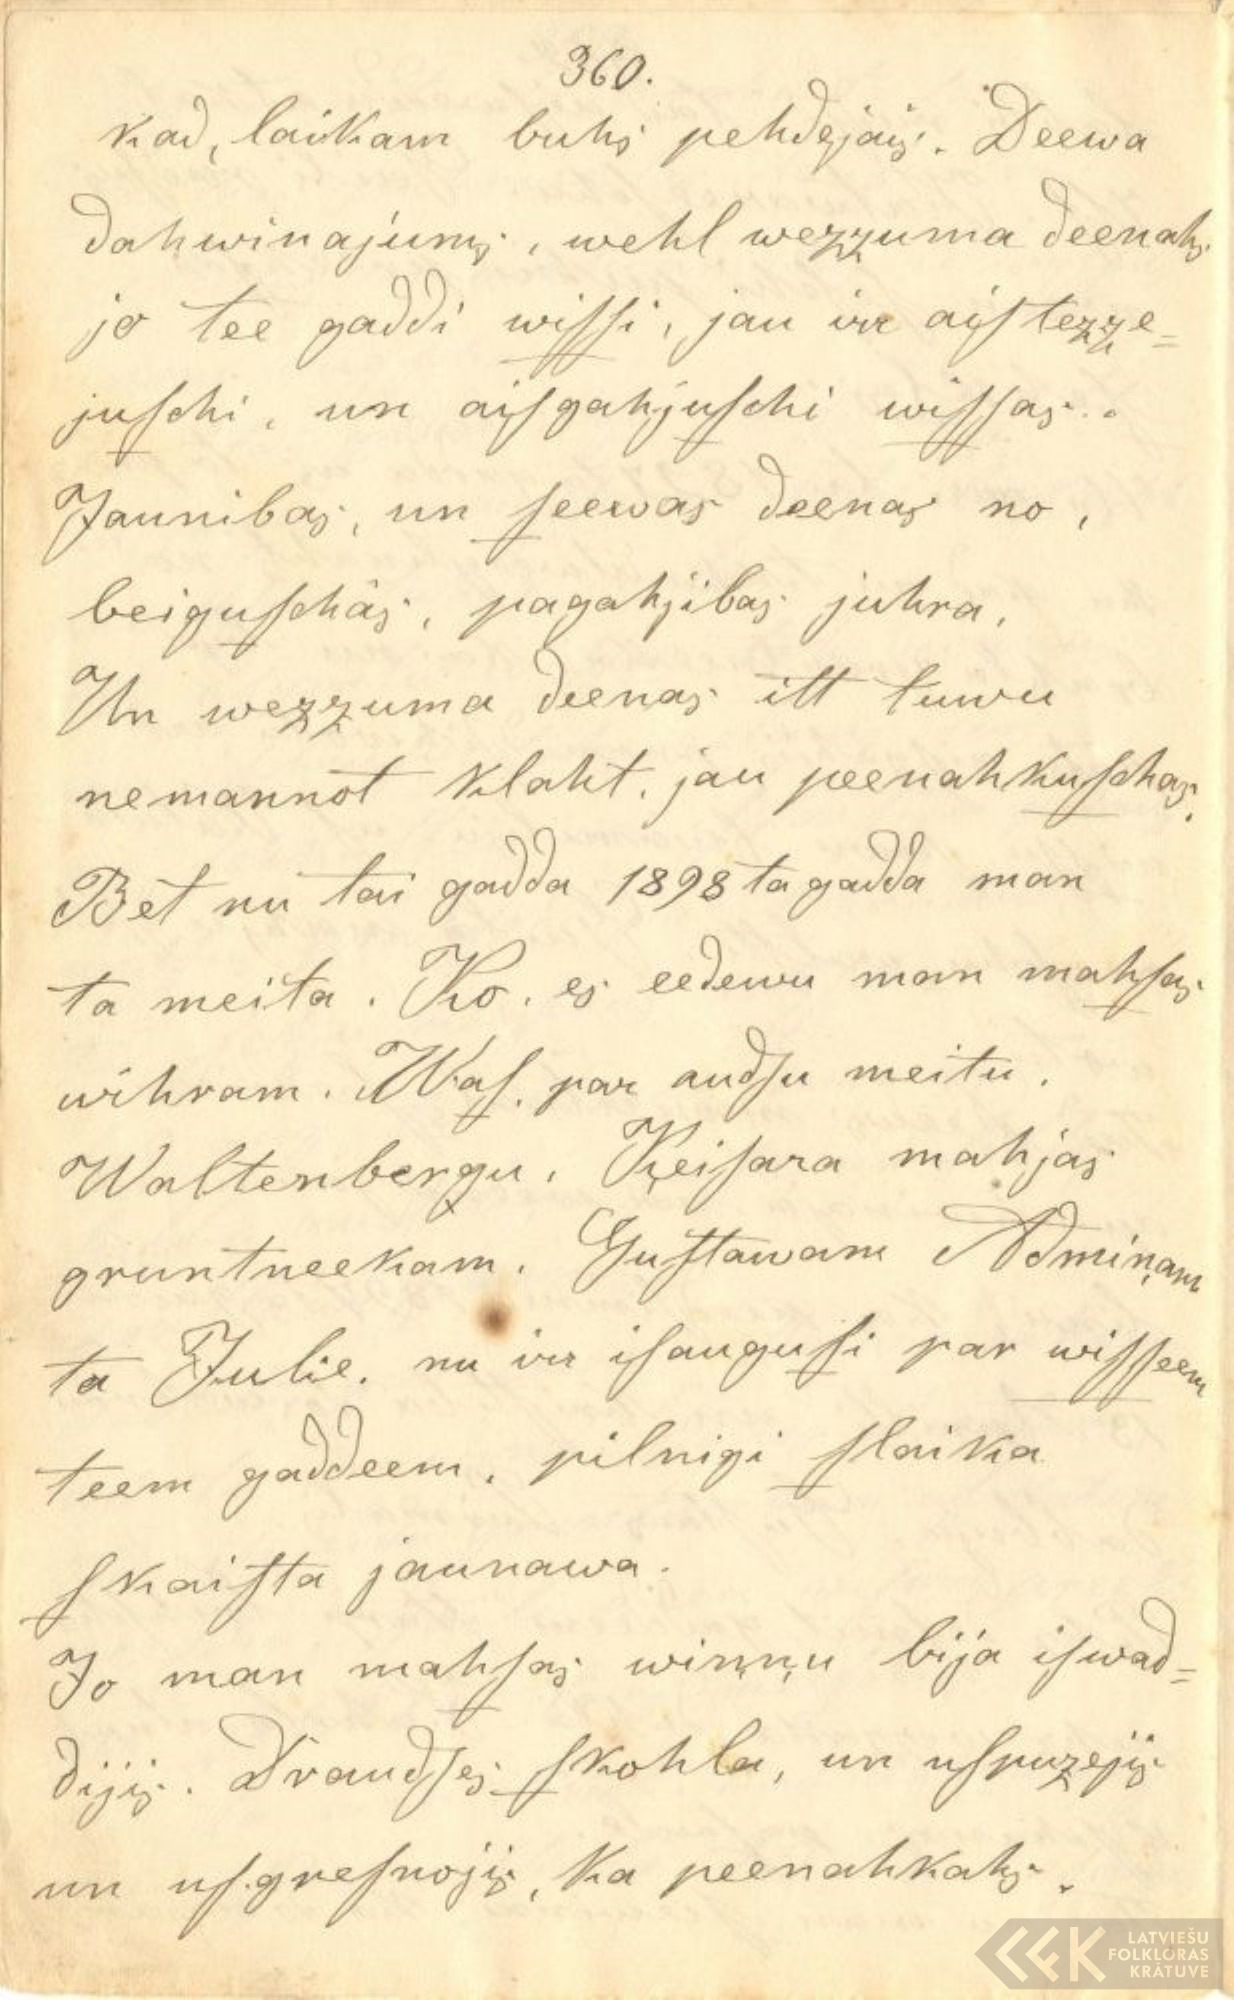 360.
kad, laikam buhs pehdejais. Deewa
dahwinajums, wehl wezzuma deenahs
jo tee gaddi wiſſi, jau irr aiſtezze=
juſchi, un aiſgahjuſchi wiſſas..
Jaunibas, un ſeewas deenas no,
beiguſchâs, pagahjibas juhra,
Un wezzuma deenas itt tuwu
nemannot klaht, jau peenahkuſchas,
Bet nu tai gadda 1898 ta gadda man
ta meita. Ko, es eedewu man mahſas
wihram. Waſ. par audſu meitu.
Waltenbergu, Ķeiſara mahjas
gruntneekam. Guſtawam Admiņam
ta Julie. nu irr iſauguſi par wiſſeem
teem gaddeem, pilnigi ſlaika
ſkaiſta jaunawa.
Jo man mahſas wiņņu bija iſwad=
dijis. Draudſes ſkohla, un uſpuzejis
un uſ.greſnojis, ka peenahkahs.
LATVIEŠU
FOLKLORAS
KRĀTUVE